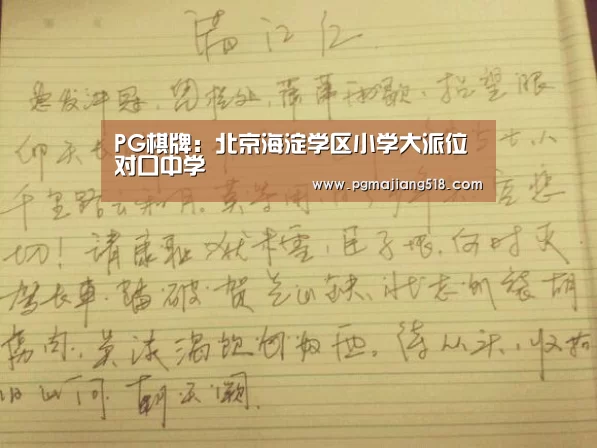 满江红
怒发冲冠，凭栏处，潇潇雨歇，抬望眼
仰天长
PG棋牌：北京海淀学区小学大派位
对口中学
www.pgmajiang518.com
千里路云和月，莫等闲，白了少年头，空悲
切！靖康耻，犹未雪，臣子恨，何时灭，
驾长车，踏破贺兰山缺，壮志饥餐胡
虏肉，笑谈渴饮匈奴血，待从头，收拾
旧山河，朝天阙。